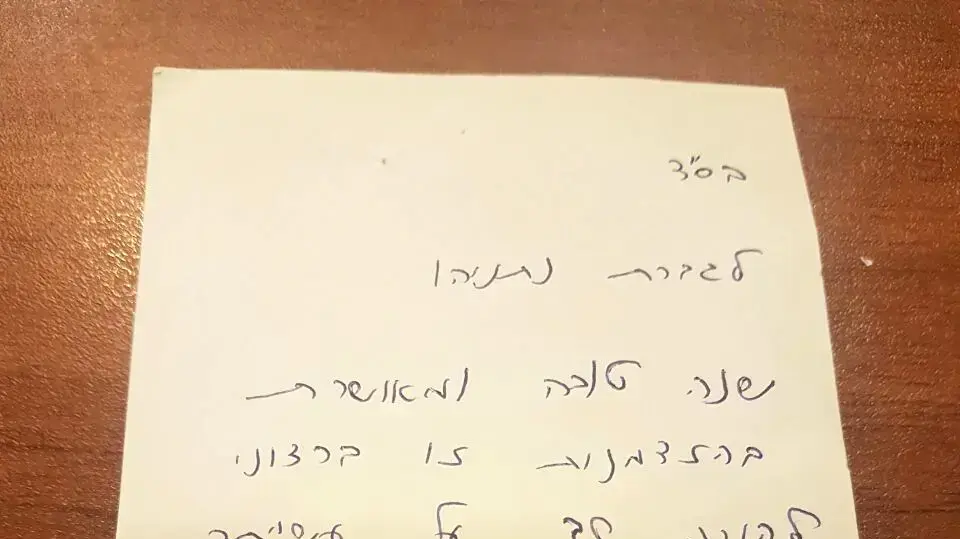 בס"ד
לגברת נתניהו
שנה טובה ומאושרת
בהזדמנות זו ברצוני
להודות לך על